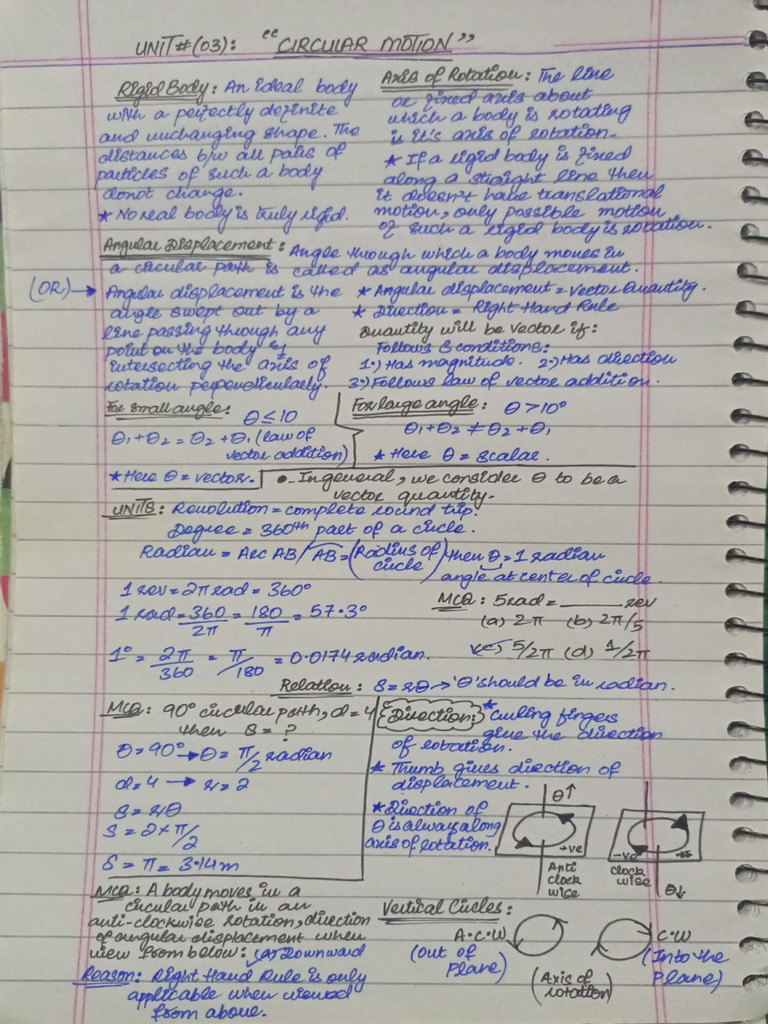 UNIT#(03): "CIRCULAR MOTION"
Rigid Body: An ideal body
with a perfectly definite
and unchanging shape. The
distances b/w all pairs of
particles of such a body
donot change.
* No real body is truly rigid.
Axis of Rotation: The line
or fixed axis about
which a body is rotating
is it's axis of rotation.
* If a rigid body is fixed
along a straight line then
it doesn't have translational
motion, only possible motion
of such a rigid body is rotation.
Angular Displacement: Angle through which a body moves in
a circular path is called as angular displacement.
(OR)→ Angular displacement is the
angle swept out by a
line passing through any
point on the body &
intersecting the axis of
rotation perpendicularly.
* Angular displacement = Vector Quantity.
* Direction = Right Hand Rule
Quantity will be vector if:
Follows 3 conditions:
1.) Has magnitude. 2.) Has direction
3.) Follows law of vector addition.
For small angle: θ≤10
θ1+θ2 = θ2+θ1 (law of
vector addition)
* Here θ = vector.
For large angle: θ>10°
θ1+θ2 ≠ θ2+θ1
* Here θ = scalar.
•- In general, we consider θ to be a
vector quantity.
UNITS: Revolution = complete round trip.
Degree = 360th part of a circle.
Radian = Arc AB / AB = (Radius of circle) then θ = 1 radian
angle at center of circle.
1 rev = 2π rad = 360°
1 rad = 360/2π = 180/π = 57.3°
1° = 2π/360 = π/180 = 0.0174 radian.
MCQ: 5 rad = ______ rev
(a) 2π (b) 2π/5
(c) 5/2π (d) 1/2π
Relation: S = rθ → 'θ' should be in radian.
MCQ: 90° circular path, d = 4
then S = ?
θ = 90° → θ = π/2 radian
d = 4 → r = 2
S = rθ
S = 2 × π/2
S = π = 3.14m
Direction: * Curling fingers
give the direction
of rotation.
* Thumb gives direction of
displacement.
* Direction of
θ is always along
axis of rotation.
θ↑
+ve
Anti
clock
wise
-ve
clock
wise
θ↓
MCQ: A body moves in a
circular path in an
anti-clockwise rotation, direction
of angular displacement when
view from below: (a) Downward
Reason: Right Hand Rule is only
applicable when viewed
from above.
Vertical Circles:
A.C.W
(Out of
plane)
C.W
(Into the
plane)
(Axis of
rotation)